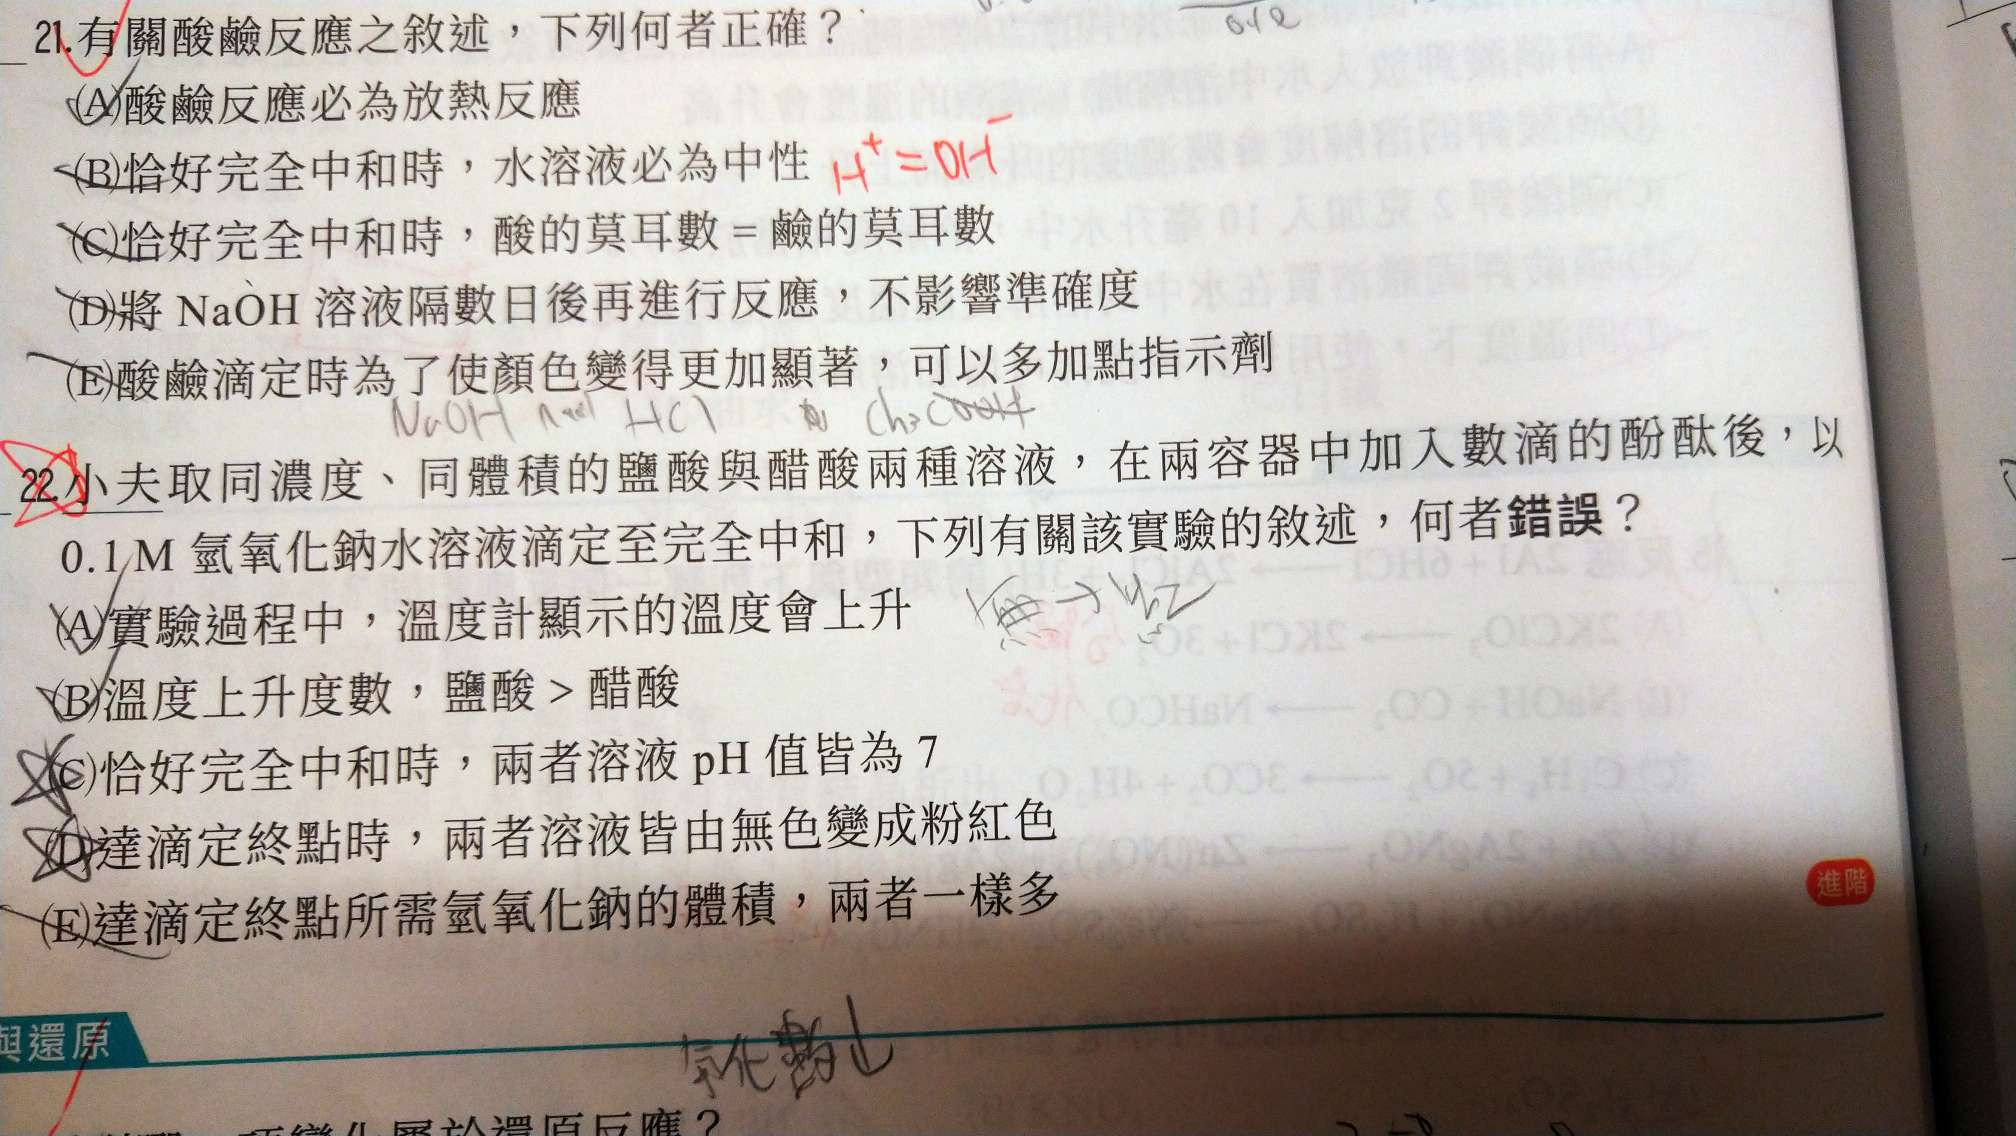 21.有關酸鹼反應之敘述，下列何者正確？
(A)酸鹼反應必為放熱反應
(B)恰好完全中和時，水溶液必為中性 H⁺=OH⁻
(C)恰好完全中和時，酸的莫耳數=鹼的莫耳數
(D)將 NaOH 溶液隔數日後再進行反應，不影響準確度
(E)酸鹼滴定時為了使顏色變得更加顯著，可以多加點指示劑
NaOH HCl CH₃COOH
22.小夫取同濃度、同體積的鹽酸與醋酸兩種溶液，在兩容器中加入數滴的酚酞後，以
0.1 M 氫氧化鈉水溶液滴定至完全中和，下列有關該實驗的敘述，何者錯誤？
無→紅
(A)實驗過程中，溫度計顯示的溫度會上升
(B)溫度上升度數，鹽酸>醋酸
(C)恰好完全中和時，兩者溶液 pH 值皆為 7
(D)達滴定終點時，兩者溶液皆由無色變成粉紅色
(E)達滴定終點所需氫氧化鈉的體積，兩者一樣多
進階
與還原
氧化數
變化屬於還原反應？